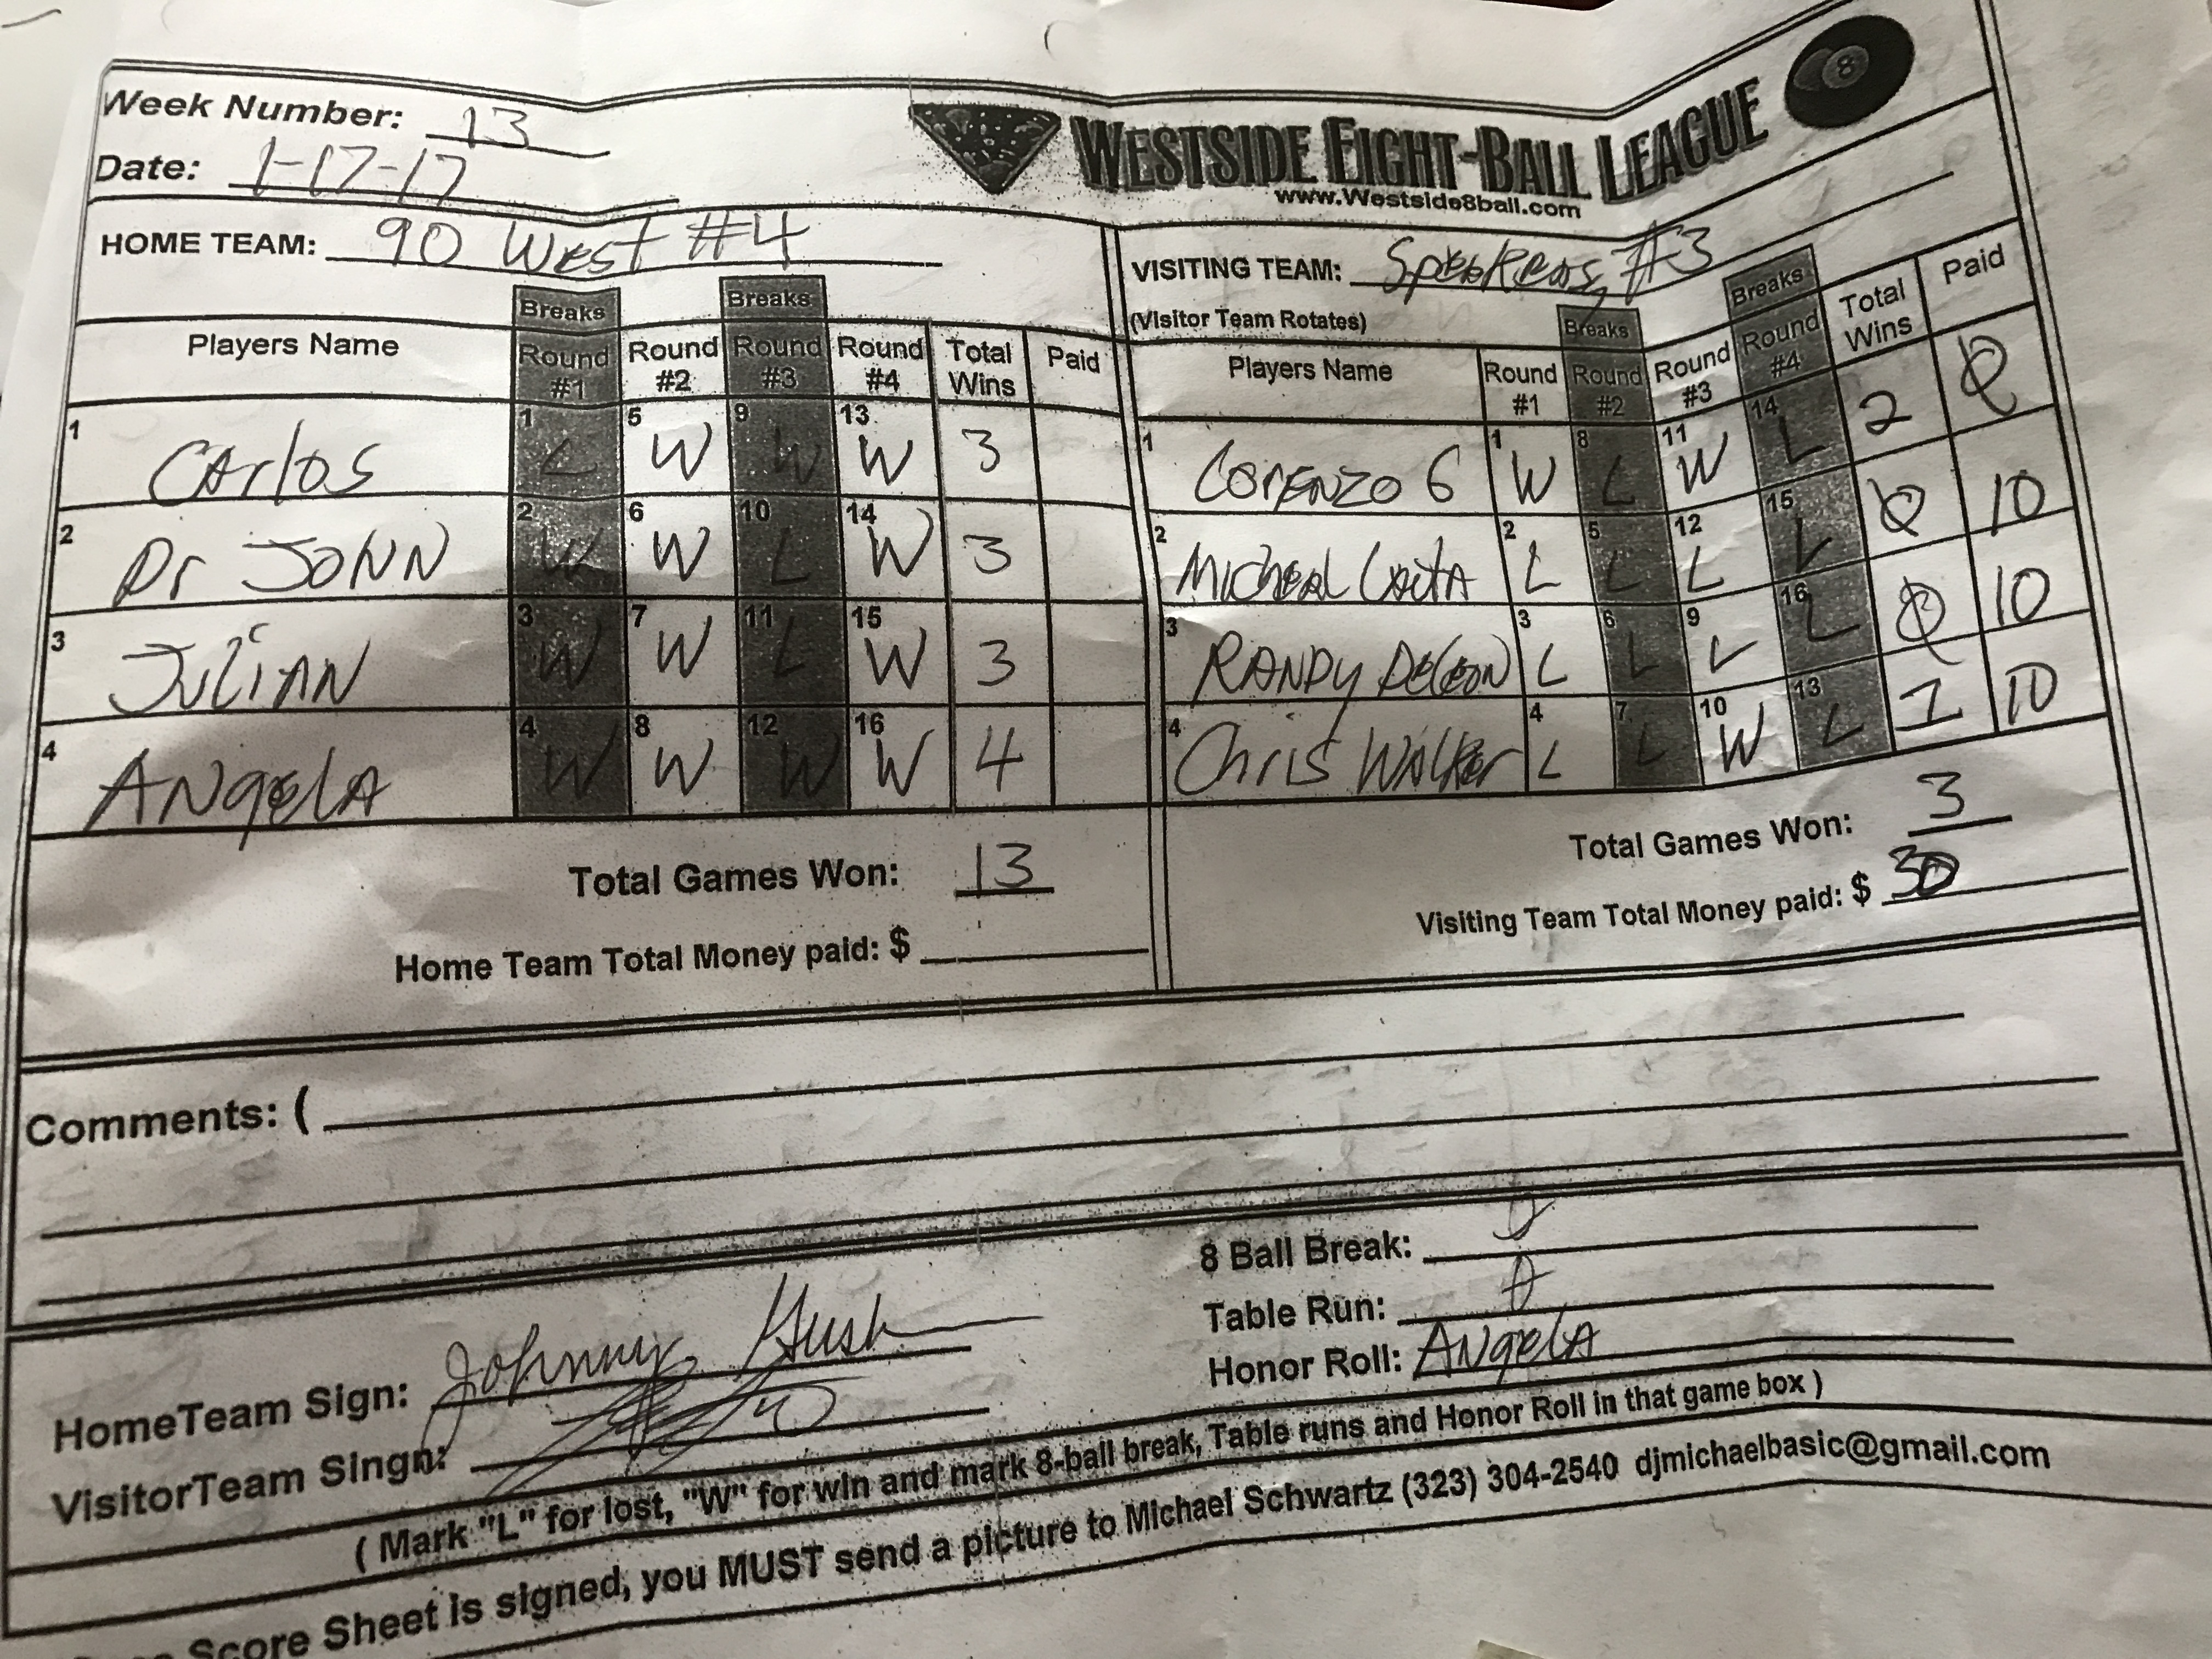 Week Number: 13
Date: 1-17-17
WESTSIDE EIGHT-BALL LEAGUE
8
www.Westside8ball.com
HOME TEAM: 90 West #4
VISITING TEAM: #3
(Visitor Team Rotates)
Breaks Breaks
Players Name Round #1 Round #2 Round #3 Round #4 Total Wins Paid
1 CArlos 1 L 5 W 9 W 13 W 3
2 Dr JOHN 2 W 6 W 10 L 14 W 3
3 JuliAN 3 W 7 W 11 L 15 W 3
4 ANgelA 4 W 8 W 12 W 16 W 4
Total Games Won: 13
Home Team Total Money paid: $
Breaks Breaks
Players Name Round #1 Round #2 Round #3 Round #4 Total Wins Paid
1 LorENZO G 1 W 8 L 11 W 14 L 2 0
2 Micheal 2 L 5 L 12 L 15 L 0 10
3 RANDY DeLeon 3 L 6 L 9 L 16 L 0 10
4 Chris WAlker 4 L 7 L 10 W 13 L 1 10
Total Games Won: 3
Visiting Team Total Money paid: $ 30
Comments: (
8 Ball Break:
Table Run:
Honor Roll: ANgelA
HomeTeam Sign: Johnny
VisitorTeam Singn:
( Mark "L" for lost, "W" for win and mark 8-ball break, Table runs and Honor Roll in that game box )
Score Sheet is signed, you MUST send a picture to Michael Schwartz (323) 304-2540 djmichaelbasic@gmail.com